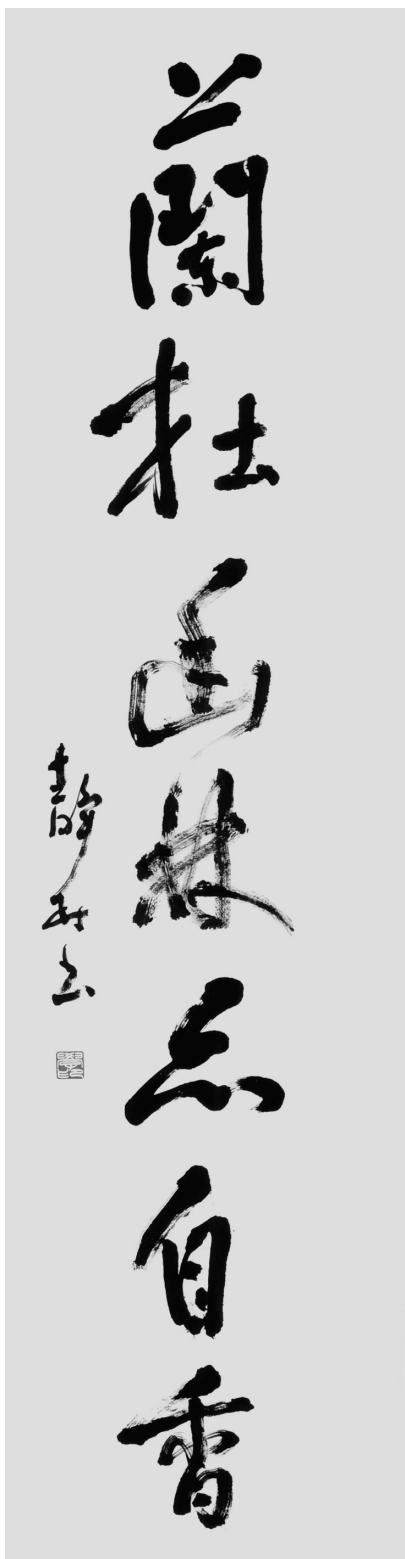 蘭在幽林亦自香
靜書